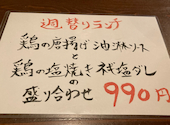 週替りランチ
鶏の唐揚げ油淋ソース
と
鶏の塩焼きねぎ塩ダレ
の
盛り合わせ 990円